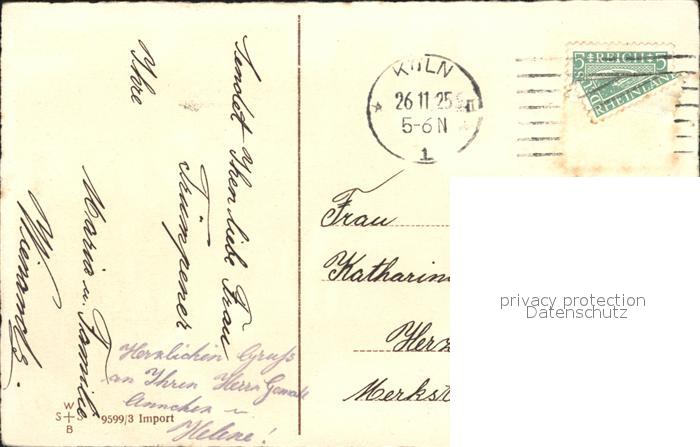 Sendet Ihnen liebe Frau
Trümpener
Ihre
Maria u. Familie
Wienands.
Herzlichen Gruß
an Ihren Herrn Gemahl
Ännchen u
Helene!
W
S + S
B
9599/3 Import
KÖLN
26.11.25
5-6 N
1
5 REICH 5
RHEINLAND
Frau
Katharin
Herz
Merkst
privacy protection
Datenschutz